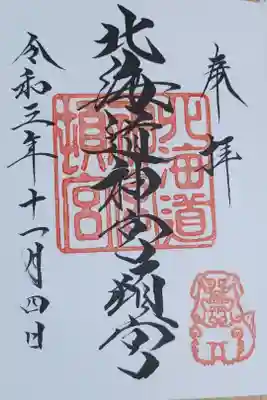 奉拝
北海道神宮頓宮
北海道
頓宮
令和三年十一月四日